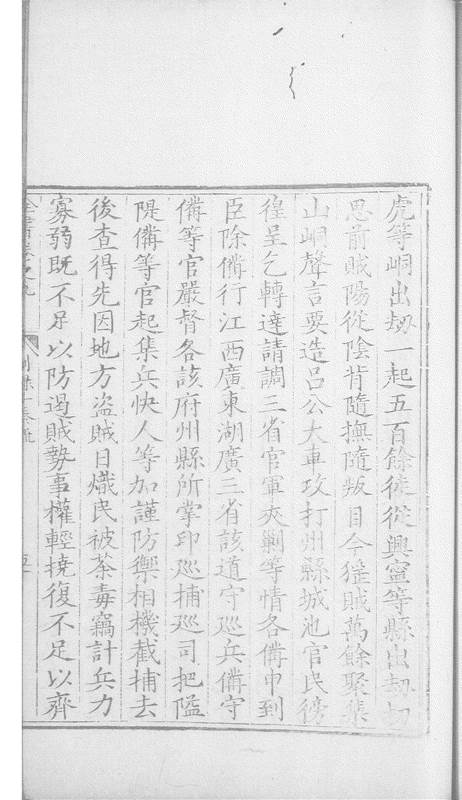 虎等峒出刼一起五百餘徒從興寧等縣出刼切
思前賊陽從陰背隨撫隨叛目今猺賊萬餘聚集
山峒聲言要造呂公大車攻打州縣城池官民徬
徨呈乞轉達請調三省官軍夾剿等情各備申到
臣除備行江西廣東湖廣三省該道守巡兵備守
備等官嚴督各該府州縣所掌印巡捕巡司把隘
隄備等官起集兵快人等加謹防禦相機截捕去
後查得先因地方盜賊日熾民被荼毒竊計兵力
寡弱既不足以防遏賊勢事權輕撓復不足以齊